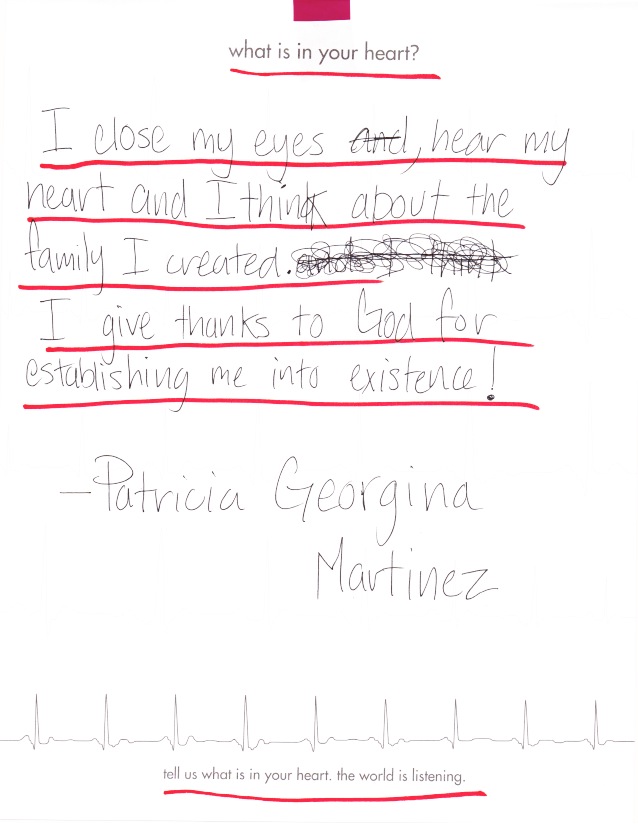 what is in your heart?
I close my eyes and, hear my
heart and I think about the
family I created.
I give thanks to God for
establishing me into existence!
-Patricia Georgina
Martinez
tell us what is in your heart. the world is listening.